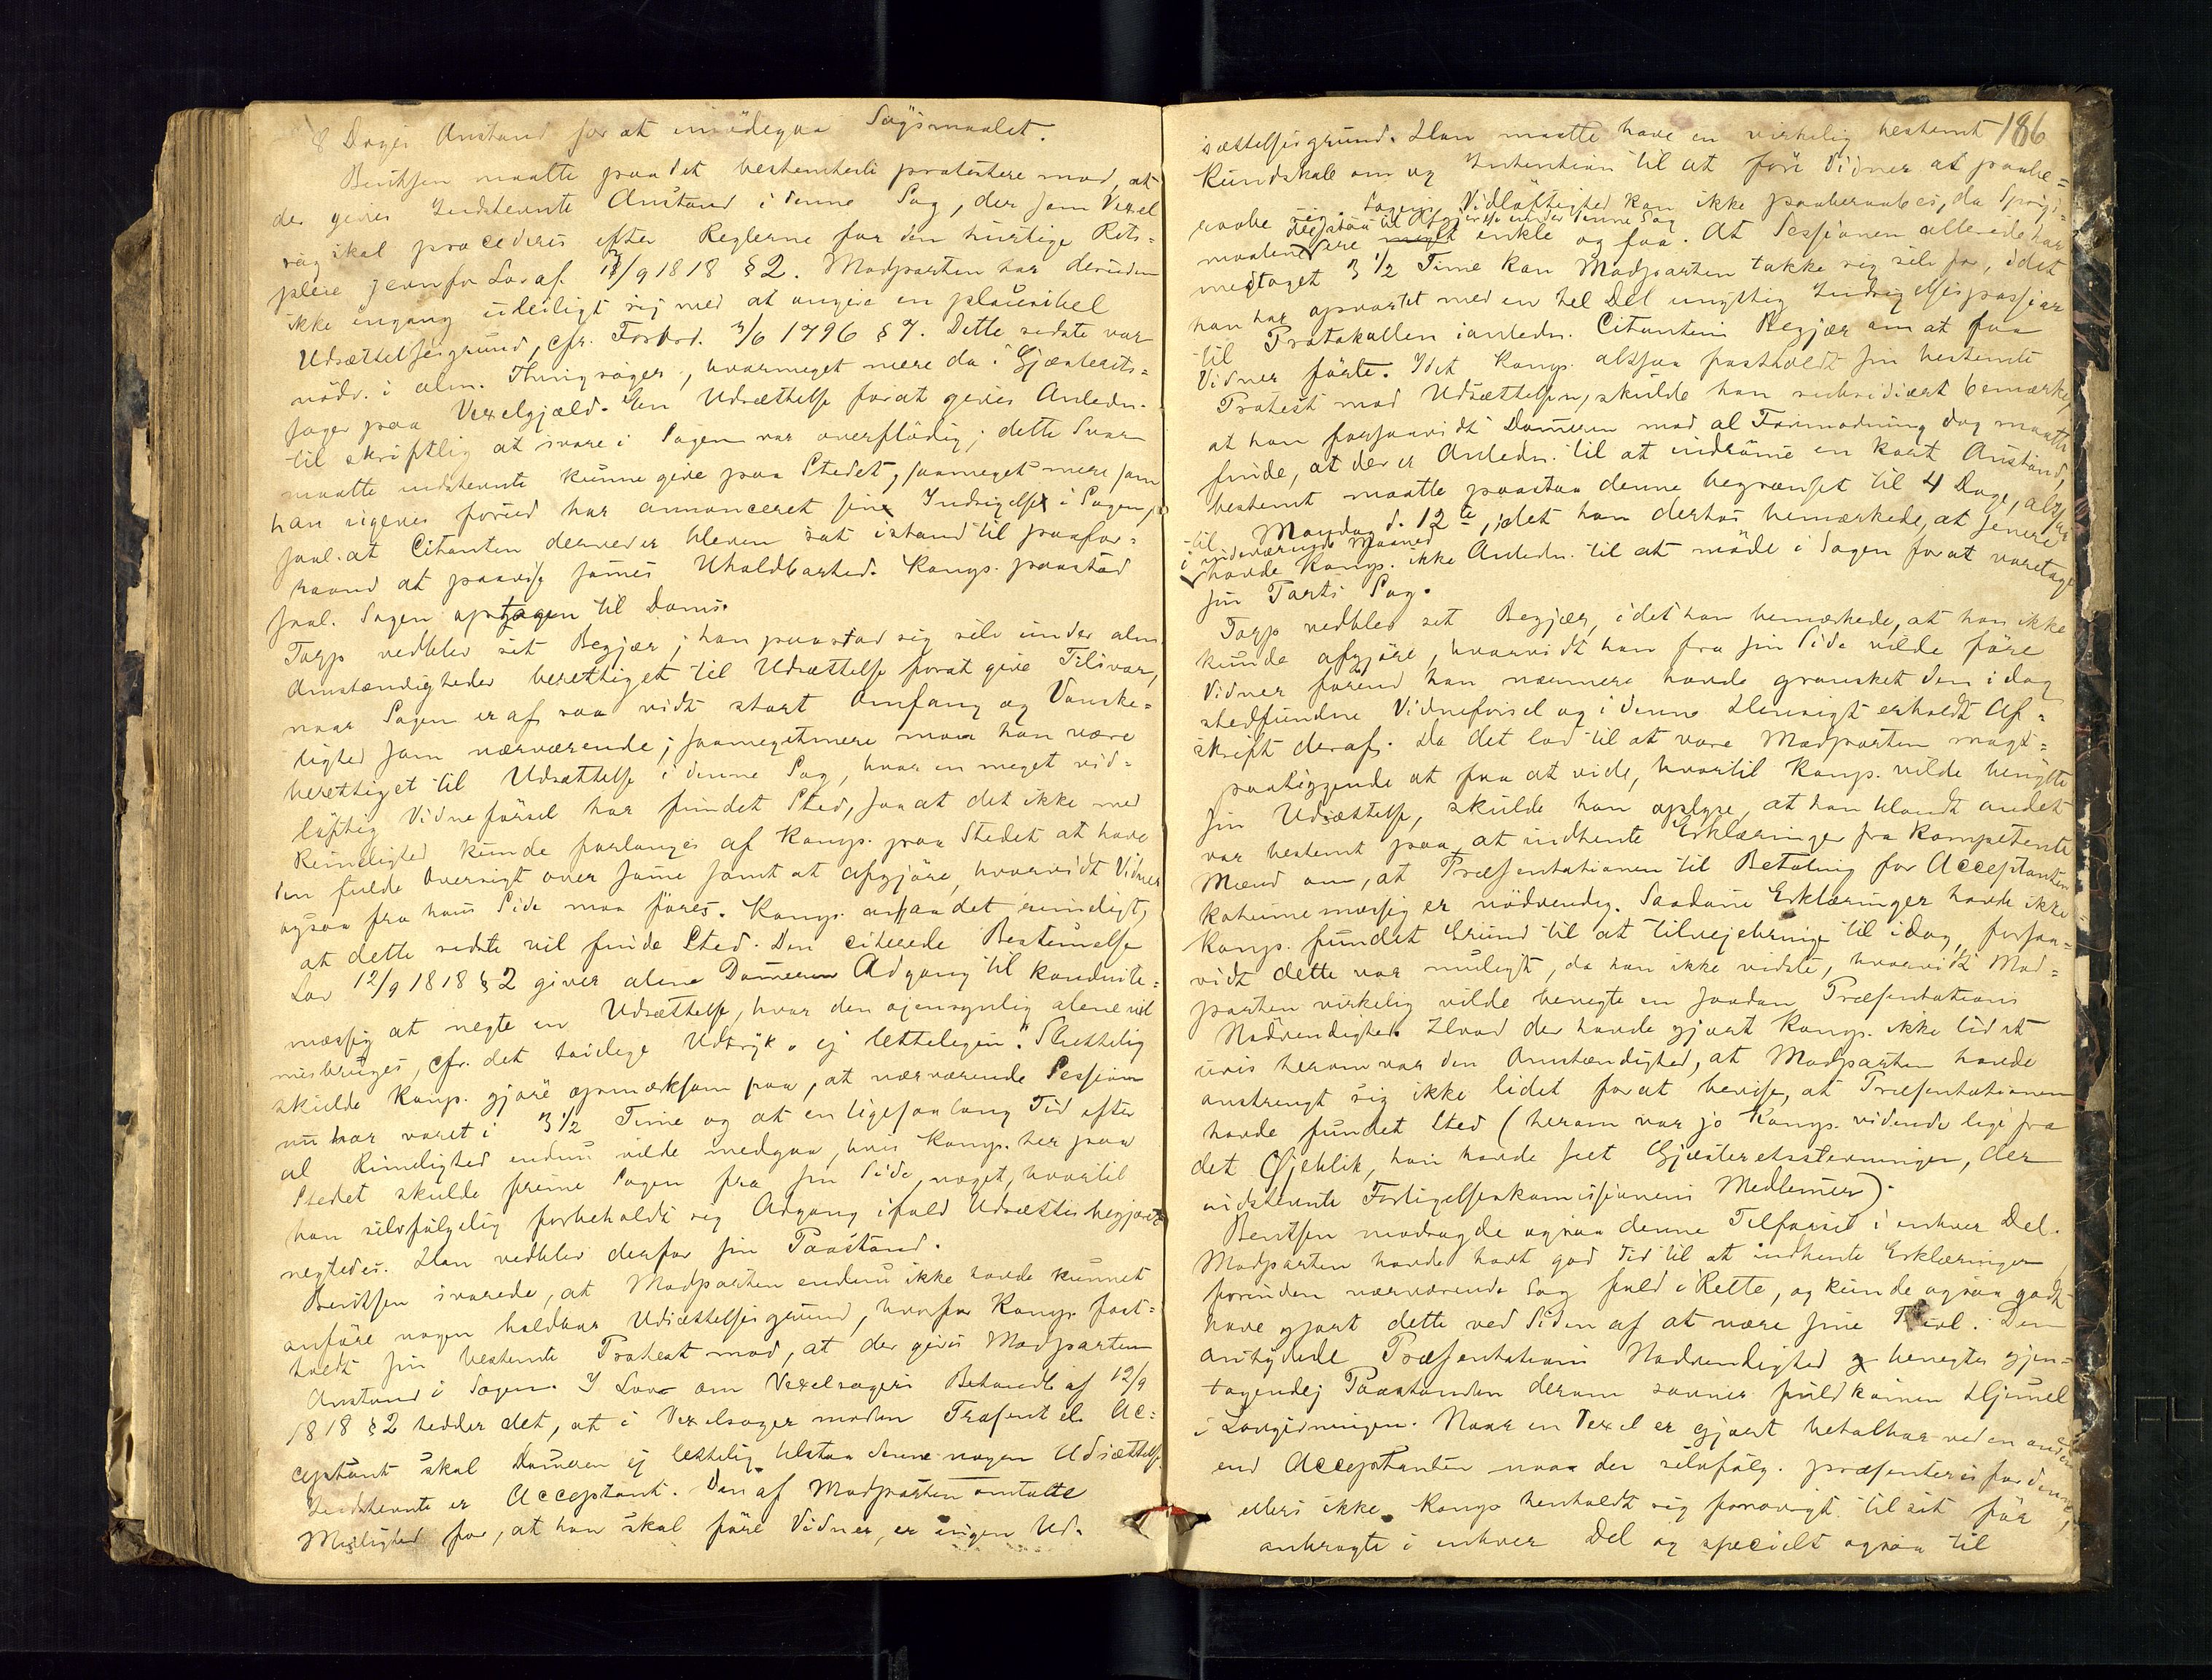 8 Dages Anstand for at imødegaa Søgsmaalet.
Bentsen maatte paa det bestemteste protestere mod, at
der gives Indstevnte Anstand i denne Sag, der som Vexel
sag skal procederes efter Reglerne for den hurtige Rets-
pleie jevnfør Lov af 12/9 1818 § 2. Modparten har desuden
ikke engang uleiliget sig med at angive en plausibel
Udsættelsesgrund, cfr. Forord. 3/6 1796 § 7. Dette sidste var
nødv. i alm. Thingsager, hvormeget mere da i Gjæsterets-
sager paa Vexelgjæld. En Udsættelse forat gives Anledn.
til skriftlig at svare i Sagen var overflødig; dette Svar
maatte indstevnte kunne give paa Stedet, saameget mere som
han sigenes forud har annonceret sine Indsigelser i Sagen,
saal. at Citanten derved er bleven sat istand til paafor-
haand at paavise sammes Uholdbarhed. Komp. paastod
saal. Sagen optagen til Doms.
Torp vedblev sit Begjær; han paastod sig selv under alm.
Omstændigheder berettiget til Udsættelse forat give Tilsvar,
naar Sagen er af saa vidt stort Omfang og Vanske-
lighed som nærværende; saameget mere maa han være
berettiget til Udsættelse i denne Sag, hvor en meget vid-
løftig Vidneførsel har fundet Sted, saa at det ikke med
Rimelighed kunde forlanges af Komp. paa Stedet at have
den fulde Oversigt over samme samt at afgjøre, hvorvidt Vidner
ogsaa fra hans Side maa føres. Komp. ansaa det rimeligt,
at dette sidste vil finde Sted. Den citerede Bestemmelse
Lov 12/9 1818 § 2 giver alene Dommeren Adgang til konduite-
mæssig at negte en Udsættelse, hvor den øiensynlig alene vil
misbruges, cfr. det tvidlige Udtryk "ej letteligen". Sluttelig
skulde Komp. gjøre opmærksom paa, at nærværende Session
nu har varet i 3 1/2 Time og at en ligesaa lang Tid efter
al Rimelighed endnu vilde medgaa, hvis Komp. her paa
Stedet skulde fremme Sagen fra sin Side, noget, hvortil
han selvfølgelig forbeholdt sig Adgang ifald Udsættelsesbegjæret
negtedes. Han vedblev derfor sin Paastand.
Bentsen svarede, at Modparten endnu ikke havde kunnet
anføre nogen holdbar Udsættelsesgrund, hvorfor Komp. fast-
holdt sin bestemte Protest mod, at der gives Modparten
Anstand i Sagen. I Lov om Vexelsagers Behandl. af 12/9
1818 § 2 hedder det, at i Vexelsager modens Trasent el. Ac-
ceptant skal Dommeren ej lettelig tilstaa denne nogen Udsættelse.
Indstevnte er Acceptant. Den af Modparten omtalte
Mulighed for, at han skal føre Vidner, er ingen Ud-
186
sættelsesgrund. Han maatte have en virkelig bestemt
Kundskab om og Intention til at føre Vidner at paabe-
raabe sig. Sagens Vidløftighed kan ikke paaberaabes, da Spørgs-
der staa til Afgjørelse under denne Sag
maalene ere meget enkle og faa. At Sessionen allerede har
medtaget 3 1/2 Time kan Modparten takke sig selv for, idet
han har opvartet med en hel Del unyttig Indsigelsespassiar
til Protokollen i anledn. Citantens Begjær om at faa
Vidner førte. Idet Komp. altsaa fastholdt sin bestemte
Protest mod Udsættelsen, skulde han subsidiært bemærke,
at han forsaavidt Dommeren mod al Formodning dog maatte
finde, at der er Anledn. til at indrømme en kort Anstand,
bestemt maatte paastaa denne begrænset til 4 Dage, altsaa
til Mandag d. 12te, idet han derhos bemærkede, at senere
i indeværende Maaned
havde Komp. ikke Anledn. til at møde i Sagen for at varetage
sin Parts Sag.
Torp vedblev sit Begjær, idet han bemærkede, at han ikke
kunde afgjøre, hvorvidt han fra sin Side vilde føre
Vidner førend han nærmere havde gransket den i dag
stedfundne Vidneførsel og i denne Hensigt erholdt Af-
skrift deraf. Da det lod til at være Modparten magt-
paaliggende at faa at vide, hvortil Komp. vilde benytte
sin Udsættelse, skulde han oplyse, at han blandt andet
var bestemt paa, at indhente Erklæringer fra kompetente
Mænd om, at Præsentationen til Betaling for Acceptanten
koutumemæssig er nødvendig. Saadanne Erklæringer havde ikke
Komp. fundet Grund til at tilvejebringe til idag, forsaa-
vidt dette var muligt, da han ikke vidste, hvorvidt Mod-
parten virkelig vilde benegte en saadan Præsentations
Nødvendighed. Hvad der havde gjort Komp. ikke lidet
uvis herom var den Omstændighed, at Modparten havde
anstrengt sig ikke lidet for at bevise, at Præsentationen
havde fundet Sted (herom var jo Komp. vidende lige fra
det Øjeblik, han havde seet Gjæsteretsstevningen, der
indstevnte Forligelseskommissionens Medlemmer).
Bentsen modsagde ogsaa denne Tilførsel i enhver Del.
Modparten havde havt god Tid til at indhente Erklæringer
forinden nærværende Sag fuld i Rette, og kunde ogsaa godt
have gjort dette ved Siden af at nære sine Tvivl. Den
antydede Præsentations Nødvendighed benegtes gjen-
tagende; Paastanden derom savner fuldkommen Hjemmel
i Lovgivningen. Naar en Vexel er gjort betalbar ved en anden
end Acceptanten maa den selvfølg. præsenteres for denne,
ellers ikke. Komp henholdt sig forøvrigt til sit før
anbragte i enhver Del og specielt ogsaa til